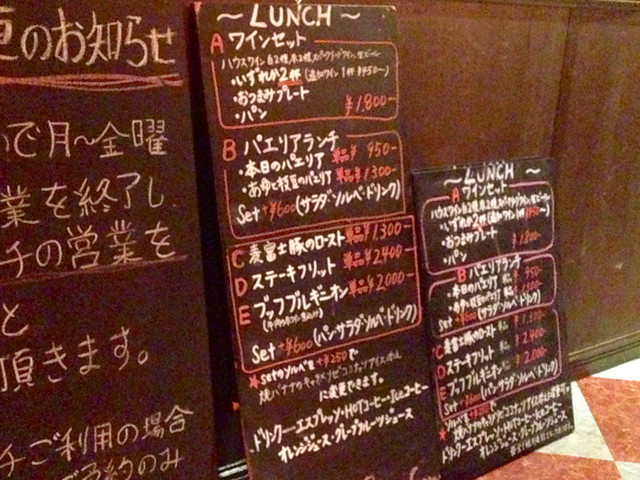 更のお知らせ
で月〜金曜
業を終了し
チの営業を
と
頂きます。
チご利用の場合
ご予約のみ
〜LUNCH〜
A ワインセット
ハウスワイン 白2種, 赤2種, スパークリングワイン, 生ビール
・いずれか2杯 (追加ワイン1杯 ¥450〜)
・おつまみプレート
・パン ¥1.800-
B パエリアランチ
・本日のパエリア 単品¥ 950-
・あゆと枝豆のパエリア 単品¥1300-
Set +¥600 (サラダ・ソルベ・ドリンク)
C 麦富士豚のロースト 単品¥1.300-
D ステーキフリット 単品¥2.400
E ブッフブルギニオン 単品¥2.000-
Set +¥600 (パン・サラダ・ソルベ・ドリンク)
★Setのソルベを+¥250で
に変更できます。
ドリンク…エスプレッソ・HOTコーヒー・Iceコーヒー
オレンジジュース・グレープフルーツジュース
〜LUNCH〜
A ワインセット
・いずれか2杯
・おつまみプレート
・パン 1.800-
B パエリアランチ
・本日のパエリア 950-
・あゆと枝豆のパエリア
Set +¥600 (サラダ・ソルベ・ドリンク)
C 麦富士豚のロースト 1.300-
D ステーキフリット 2.400
E ブッフブルギニオン 2.000-
Set +¥600 (パン・サラダ・ソルベ・ドリンク)
ドリンク…エスプレッソ・HOTコーヒー・Iceコーヒー
オレンジジュース・グレープフルーツジュース